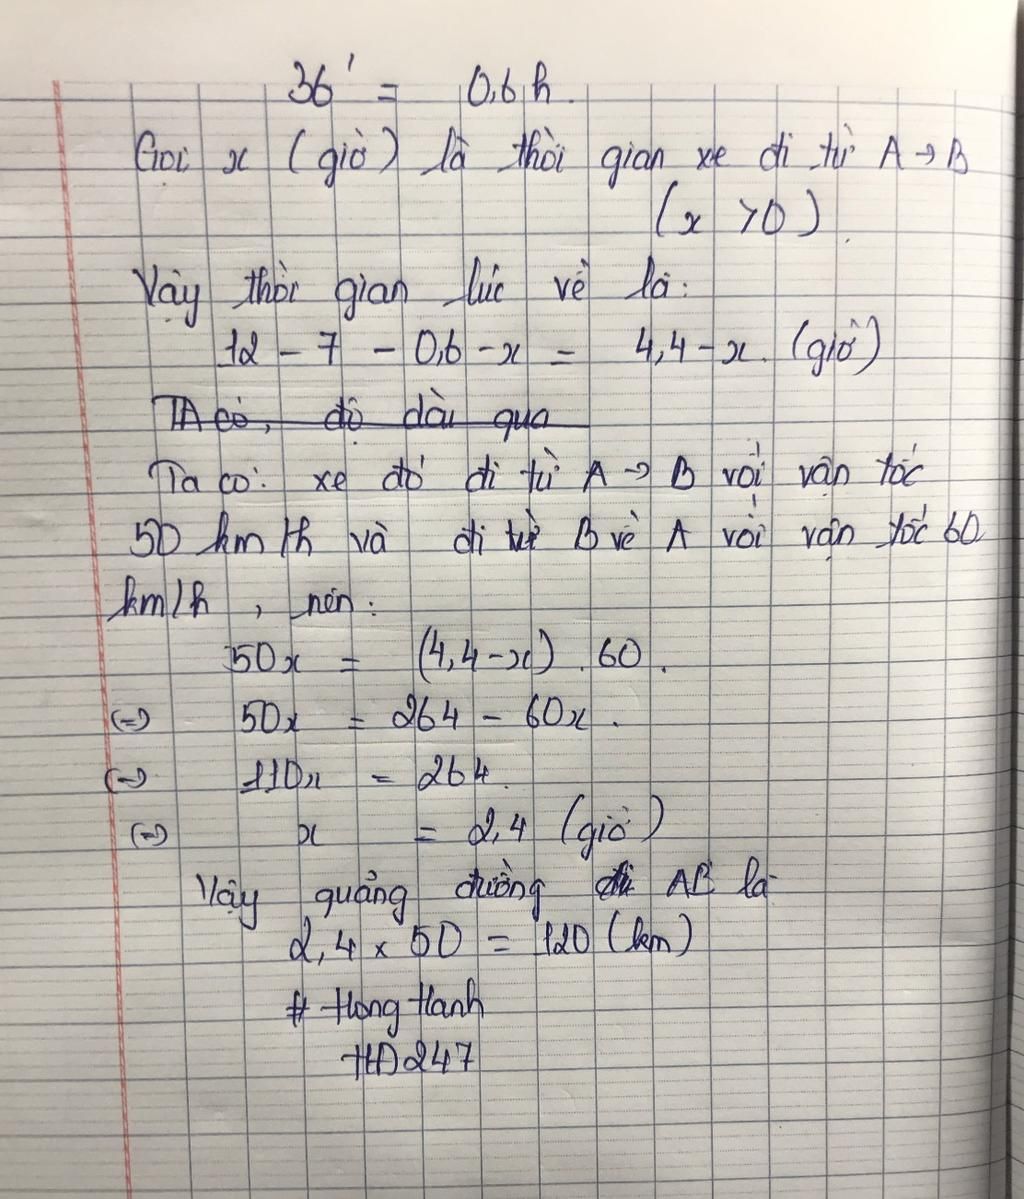 36' = 0,6 h.
Gọi x (giờ) là thời gian xe đi từ A → B
(x > 0).
Vậy thời gian lúc về là:
12 - 7 - 0,6 - x = 4,4 - x. (giờ)
TA có, độ dài qua
Ta có: xe đó đi từ A → B với vận tốc
50 km/h và đi từ B về A với vận tốc 60
km/h, nên:
50x = (4,4-x) . 60.
(=) 50x = 264 - 60x.
(=) 110x = 264.
(=) x = 2,4 (giờ)
Vậy quảng đường đi AB là
2,4 x 50 = 120 (km)
# Hong Hanh
HD247